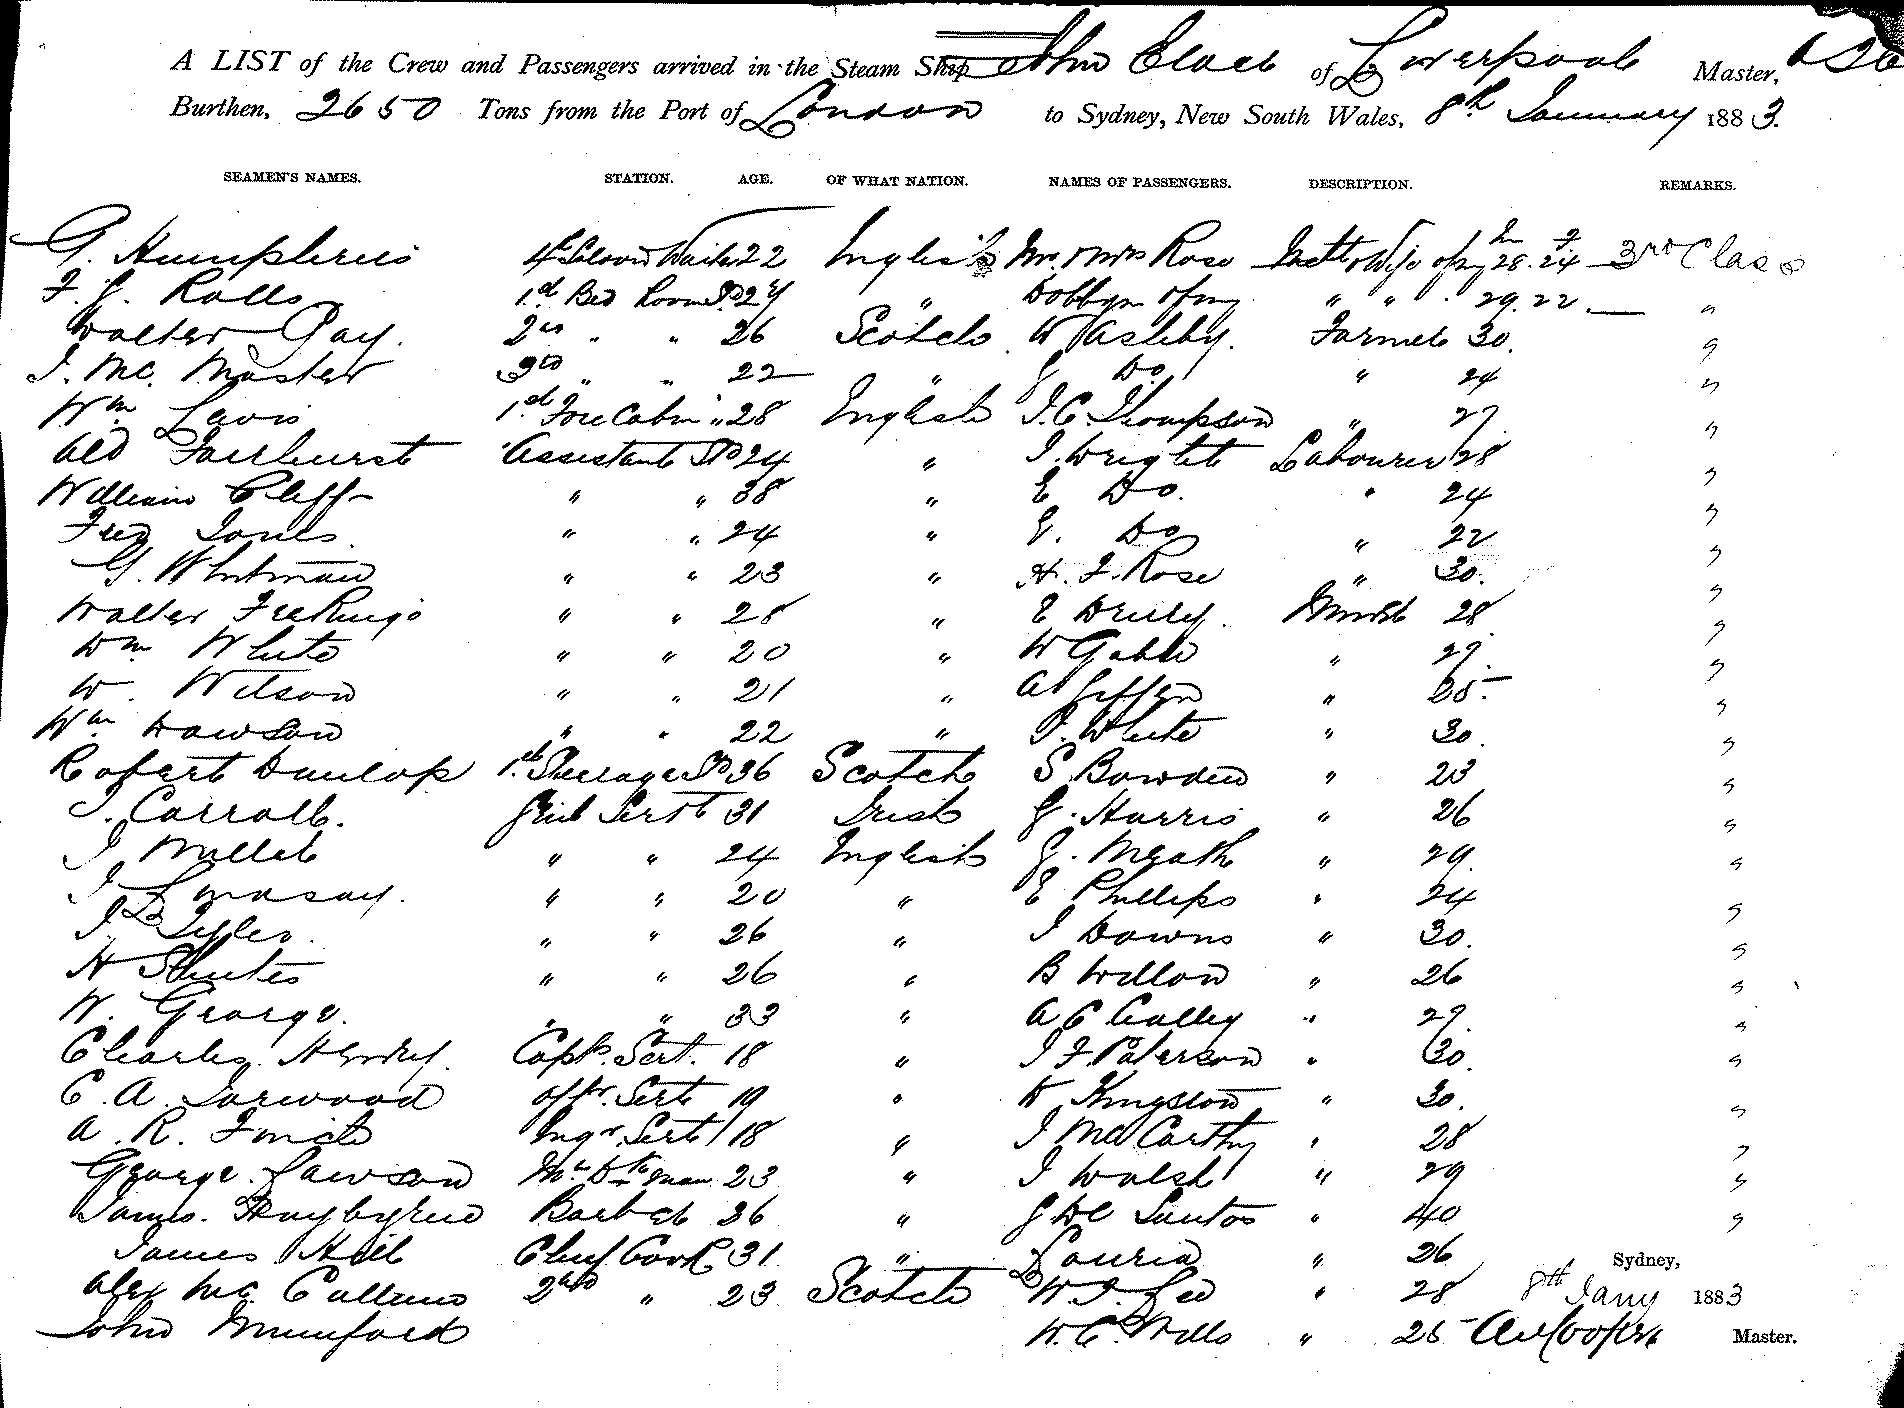 A LIST of the Crew and Passengers arrived in the Steam Ship John Elder of Liverpool Master,
Burthen, 2650 Tons from the Port of London to Sydney, New South Wales, 8th January 1883.
SEAMEN'S NAMES. STATION. AGE. OF WHAT NATION. NAMES OF PASSENGERS. DESCRIPTION. REMARKS.
G. Humphries Saloon Waiter 22 English Mr. & Mrs Rose & Wife 28. 24 3rd Class
F. J. Rolls 1st Bed Room Sd " " " 29. 22 "
Walter Gay. 2nd " " 26 Scotch W Ashby. Farmer 30. "
J. Mc. Master 3rd " " 22 " J Do " 24 "
Wm Lavis 1st Fore Cabin " 28 English J. C. Thompson " 27 "
Fairhurst Assistant Sd 24 " J. Wright Labourer 28 "
William Cliff " " 38 " E Do. " 24 "
Fred Jones. " " 24 " G. Do " 22 "
G. Whitman " " 23 " H. J. Rose " 30. "
Walter " " 28 " E 28 "
Wm White " " 20 " W Gable " 29. "
W. Wilson " " 21 " A " 25 "
Wm Dawson " " 22 " J. White " 30. "
Robert Dunlop 1st Steerage Sd 36 Scotch S Bowden " 23 "
J. Carroll. Genl Servt 31 Irish G. Harris " 26 "
J Millet " " 24 English J. Meath " 29. "
J Lindsay. " " 20 " E Phillips " 24 "
J. Tyler. " " 26 " J Downs " 30. "
H Shutes " " 26 " B Willow " 26 "
W. George. " " 33 " A C Culley " 29. "
Charles Hendry. Capts. Sert. 18 " J F Paterson " 30. "
C. A. Offrs. Sert 19 " K Kingston " 30. "
A. R. Finch Engr. Sert 18 " J McCarthy " 28 "
George Lawson 23 " J Walsh " 29 "
James. Barber 36 " J De Santos " 40 "
James Hill Chief Cook 31 " " 26 Sydney,
Alex Mc. Callum 2nd " 23 Scotch W. J. Lee " 28 8th Jany 1883
John Mumford W. C. Wills " 25 Master.